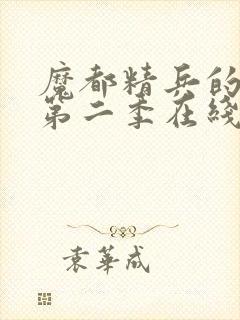 魔都精兵的
第二季在线
袁华成